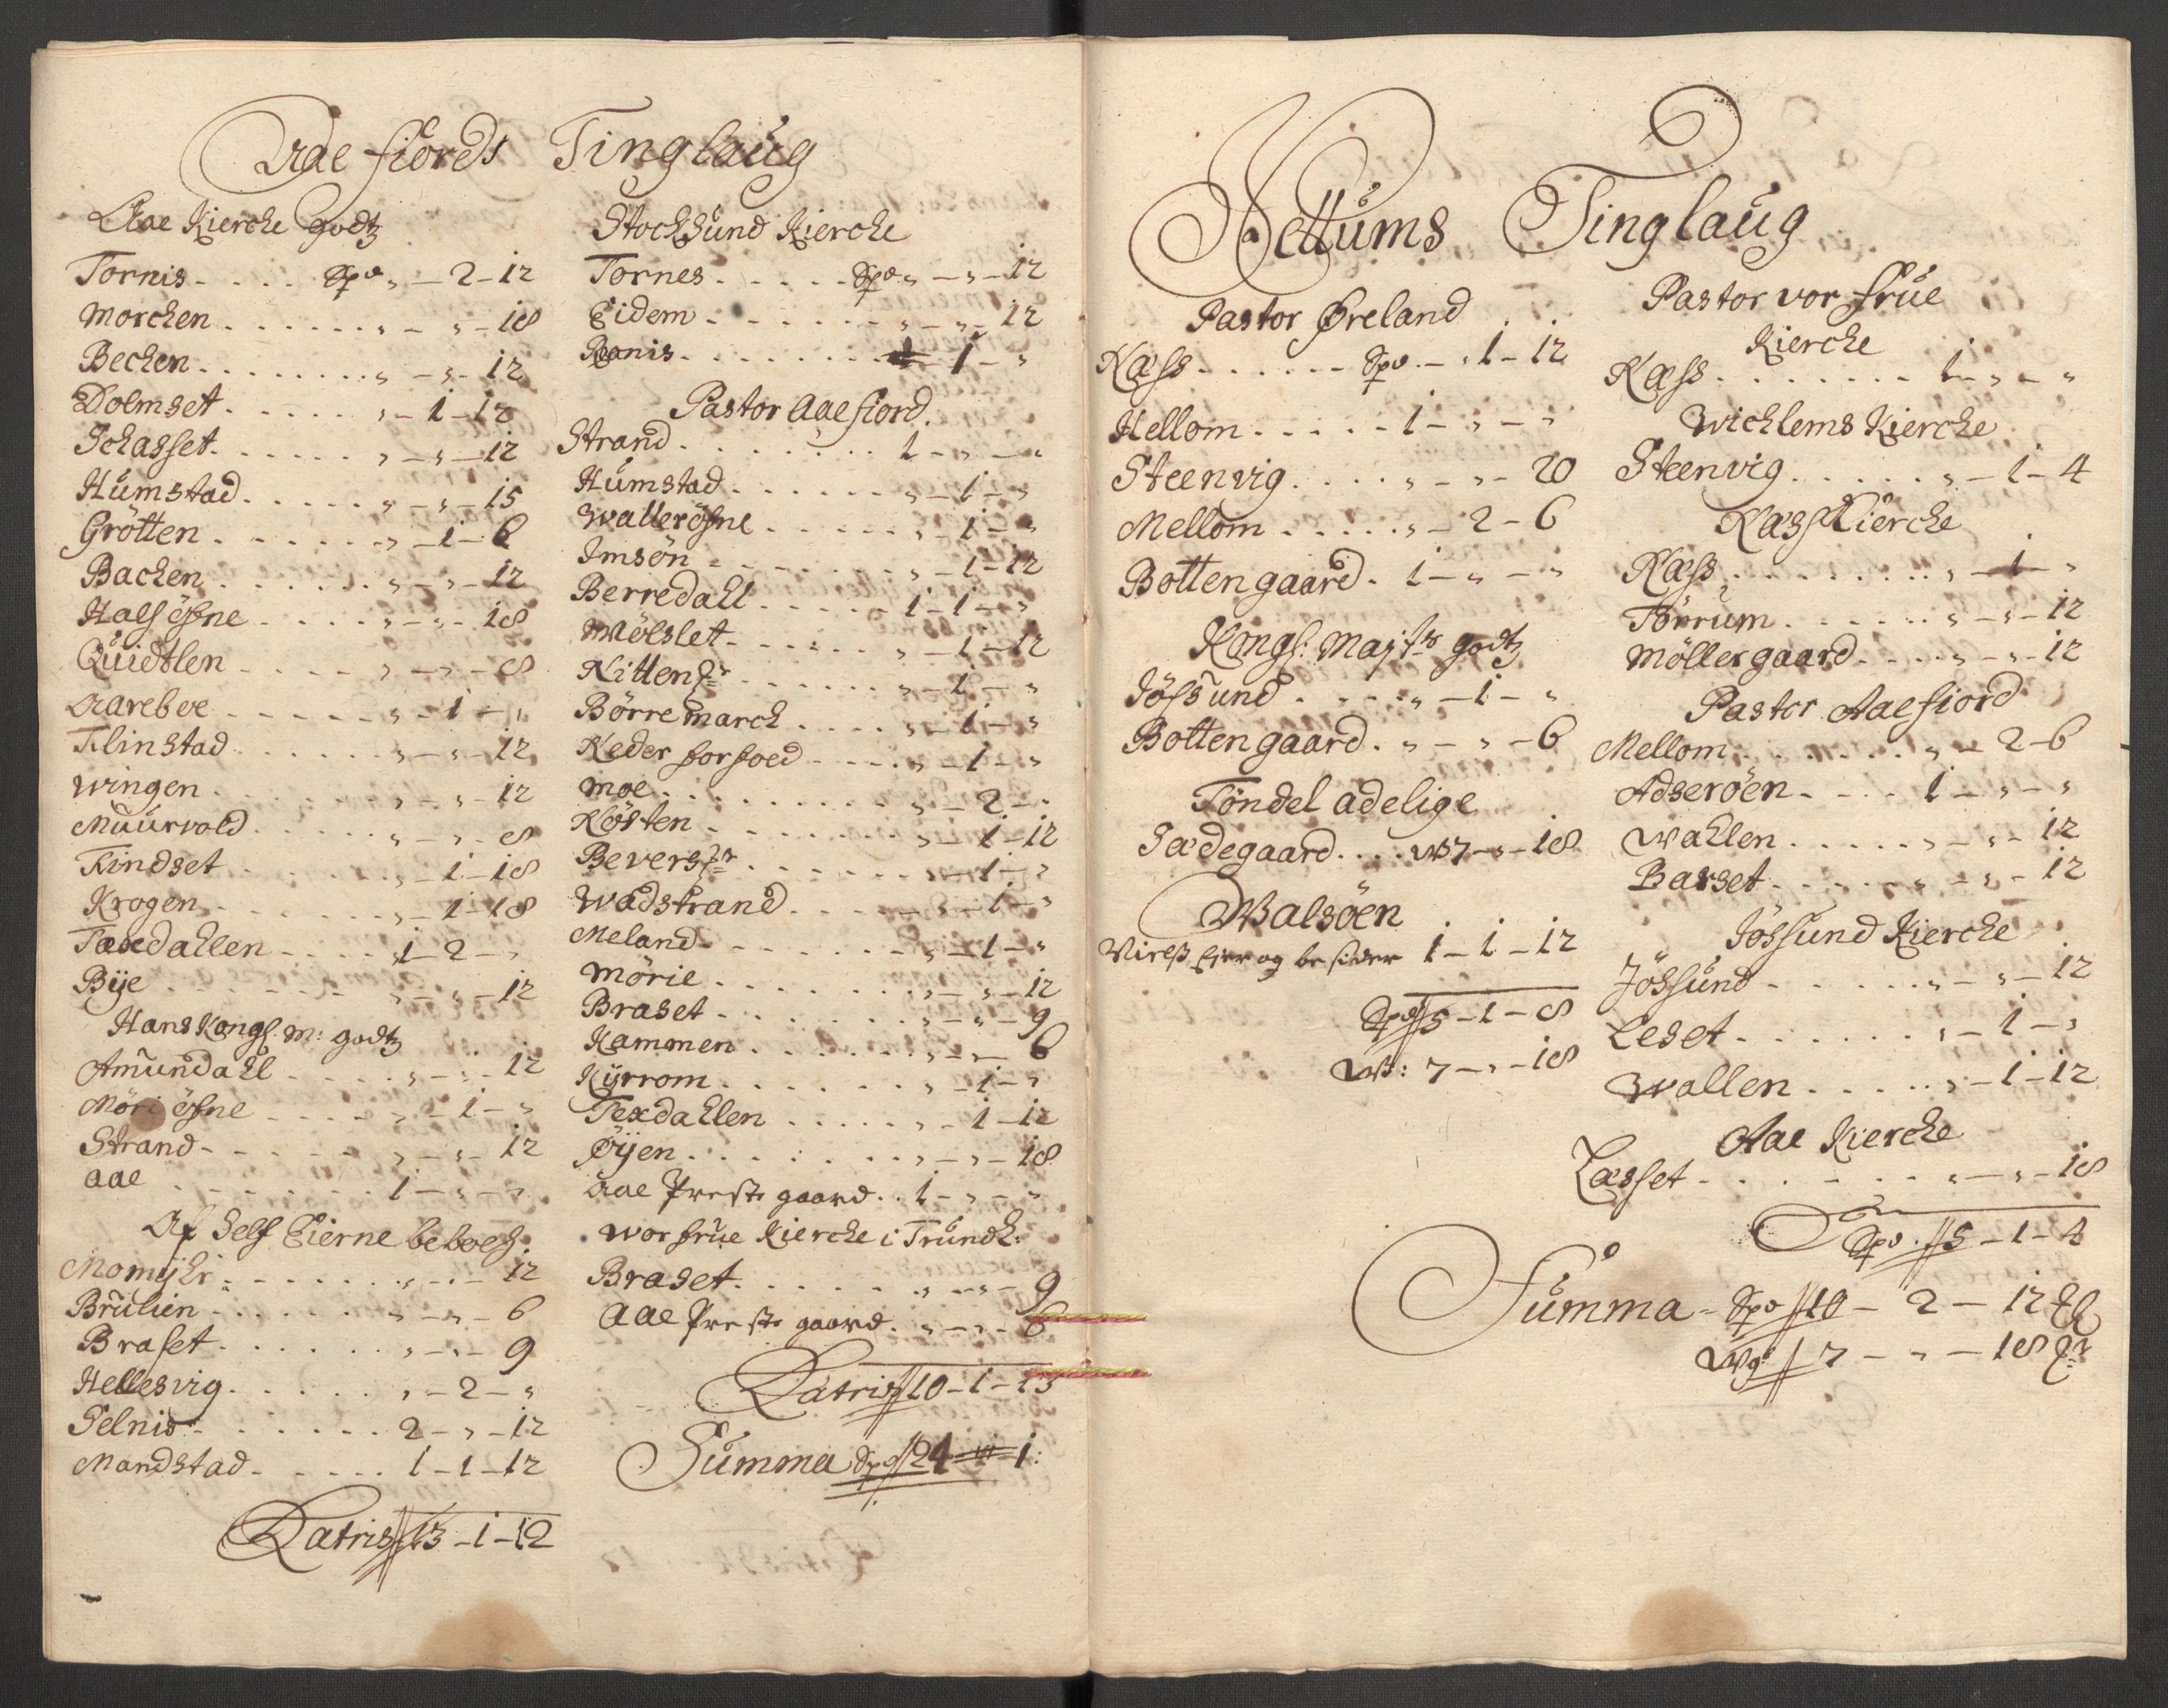 Aae fiords Tinglaug
Aae Kierche godtz
Tornis - . . . Spd „ - 2 - 12
Morchen . . . . . . „ - „ - 18
Bechen . . . . . . . . „ - „ - 12
Dolmset . . . . . . „ - 1 - 12
Schasset . . . . . . „ - „ - 12
Humstad . . . . . „ - „ - 15
Grötten . . . . . . „ - 1 - 6
Bachen . . . . . . „ - „ - 12
Hals öfne . . . . . „ - „ - 18
Quidtlen . . . . . „ - „ - 8
Aareboe . . . . . . „ - 1 - „
Flinstad . . . . . . „ - „ - 12
Wingen . . . . . . „ - „ - 12
Muurvold . . . . . „ - „ - 8
Findset . . . . . . „ - 1 - 18
Krogen . . . . . . „ - 1 - 18
Taxdahlen . . . . 1 - 2 - „
Bÿe . . . . . . „ - „ - 12
Hans Kongl. M: godtz
Amundahl . . . . „ - „ - 12
Möri öfne . . . . „ - 1 - „
Strand . . . . . . „ - „ - 12
Aae . . . . . . . 1 - „ - „
Af Self Eierne beboes
Momÿhr . . . . . . „ - „ - 12
Brulien . . . . . . „ - „ - 6
Braset . . . . . . „ - „ - 9
Hellesvig . . . . . „ - 2 - „
Selnis . . . . . . 2 - „ - 12
Mandstad . . . . . 1 - 1 - 12
Latris // 13 - 1 - 12
Stochsund Kierche
Tornes . . . . . Spd „ - „ - 12
Eidem . . . . . . „ - „ - 12
Ranis . . . . . . . 1 - „
Pastor Aaefiord.
Strand . . . . . . . 1 - „ - „
Humstad . . . . . . „ - 1 - „
Walleröfne . . . . . „ - 1 - „
Imsön . . . . . . . „ - 1 - 12
Berredahl . . . . . 1 - 1 - „
Mölslet . . . . . . „ - 1 - 12
Nitten . . . . . . „ - 1 - „
Börremarch . . . . „ - 1 - „
Neder forfoed . . . . „ - 1 - „
Moe . . . . . . . . „ - 2 - „
Kösten . . . . . . . „ - 1 - 12
Bevers . . . . . . „ - 1 - „
Wadstrand . . . . . „ - 1 - „
Meland . . . . . . „ - 1 - „
Mörie . . . . . . . „ - „ - 12
Braset . . . . . . . „ - „ - 9
Kammen . . . . . . „ - „ - 6
Kÿrrom . . . . . . „ - 1 - „
Texdahlen . . . . . „ - 1 - 12
Øÿen . . . . . . . „ - „ - 18
Aae Preste gaard . . 1 - „ - „
Wor frue Kierche i Trundh:
Braset . . . . . . „ - „ - 9
Aae Preste gaard . „ - „ - 6
Latris // 10 - 1 - 13
Summa Spd // 24 1:
Nettums Tinglaug
Pastor Øreland
Næss . . . . . . Spd. - „ 1 - 12
Hellom . . . . . 1 - „ - „
Steenvig . . . . „ - „ - 20
Mellom . . . . . „ - 2 - 6
Bottengaard . 1 - „ - „
Kongl: Maj:ts godtz
Jössund . . . . „ - 1 - „
Bottengaard . „ - „ - 6
Töndel adelige
Sædegaard . . . W 7 - „ - 18
Walsöen
Nielss Eier og besidder 1 - 1 - 12
Spd // 5 - 1 - 8
W: 7 - „ - 18
Pastor vor frue
Kierche
Næss . . . . . . . 1 - „ - „
Wichlems Kierche
Steenvig . . . . . „ - 1 - 4
Næss Kierche
Næss . . . . . . . . „ - 1 - „
Törrum . . . . . . „ - „ - 12
Möllergaard . . . . „ - „ - 12
Pastor Aaefiord
Mellom . . . . . . „ - 2 - 6
Adseröen . . . . 1 - „ - „
Wahlen . . . . . „ - „ - 12
Barset . . . . . . „ - „ - 12
Jössund Kierche
Jössund . . . . . „ - „ - 12
Leset . . . . . . „ - 1 - „
Wallen . . . . . „ - 1 - 12
Aae Kierche
Læsset . . . . . . „ - „ - 18
Spd. // 5 - 1 - 4
Summa - Spd // 10 - 2 - 12
Wg // 7 - „ - 18